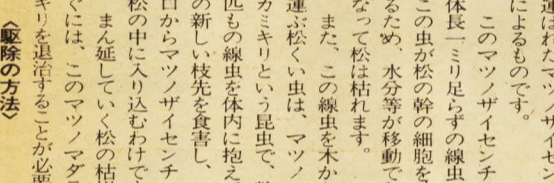 運ばれたマツノザイセン
によるものです。
このマツノザイセンチ
体長一ミリ足らずの線虫
この虫が松の幹の細胞を
るため、水分等が移動で
なって松は枯れます。
また、この線虫を木か
運ぶ松くい虫は、マツノ
カミキリという昆虫で、
匹もの線虫を体内に抱え
の新しい枝先を食害し、
口からマツノザイセンチ
松の中に入り込むわけで
まん延していく松の枯
ぐには、このマツノマダ
キリを退治することが必要
〈駆除の方法〉